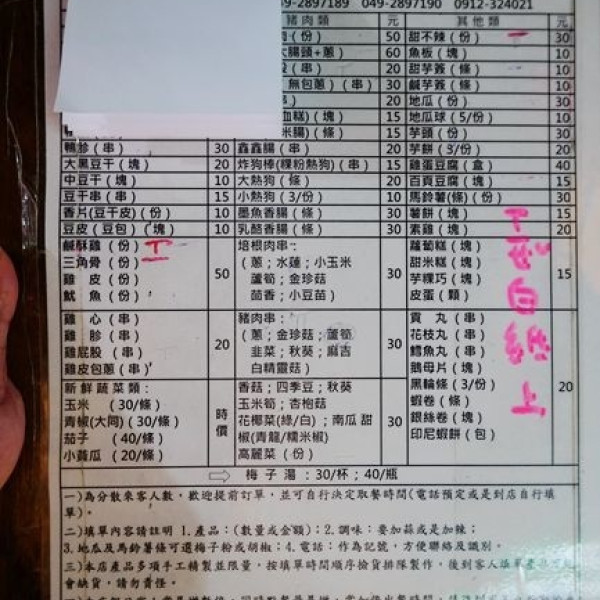 049-2897189 049-2897190 0912-324021
豬肉類 元 其他類 元
(份) 50 甜不辣(份) 30
大腸頭+蔥) 60 魚板(塊) 10
(串) 20 甜芋簽(條) 10
無包蔥)(串) 30 鹹芋簽(條) 10
20 地瓜(份) 30
血糕)(塊) 15 地瓜球(5/份) 10
米腸)(條) 15 芋頭(份) 30
鴨胗(串) 30 鑫鑫腸(串) 20 芋餅(3/份) 20
大黑豆干(塊) 20 炸狗棒(粿粉熱狗)(串) 15 雞蛋豆腐(盒) 40
中豆干(塊) 10 大熱狗(條) 20 百頁豆腐(塊) 15
豆干串(串) 15 小熱狗(3/份) 10 馬鈴薯(條)(份) 30
香片(豆干皮)(份) 10 墨魚香腸(條) 30 薯餅(塊) 15
豆皮(豆包)(塊) 10 乳酪香腸(條) 30 素雞(塊) 20
鹹酥雞(份) 培根肉串: 蘿蔔糕(塊)
三角骨(份) 50 (蔥;水蓮;小玉米 30 甜米糕(塊) 15
雞 皮(份) 蘆筍;金珍菇 芋粿巧(塊)
魷 魚(份) 茴香;小豆苗) 皮蛋(顆)
雞 心(串) 豬肉串: 貢 丸(串)
雞 胗(串) 20 (蔥;金珍菇;蘆筍 30 花枝丸(串)
雞屁股(串) 韭菜;秋葵;麻吉 鱈魚丸(串)
雞皮包蔥(串) 白精靈菇) 鵝母片(塊)
新鮮蔬菜類: 時價 香菇;四季豆;秋葵 30 黑輪條(3/份) 20
玉米 (30/條) 玉米筍;杏桕菇 蝦卷(條)
青椒(大同)(30/條) 花椰菜(綠/白);南瓜甜 銀絲卷(塊)
茄子 (40/條) 椒(青龍/糯米椒) 印尼蝦餅(包)
小黃瓜 (20/條) 高麗菜(份)
自紙上
⇨ 梅子湯:30/杯;40/瓶
一)為分散來客人數,歡迎提前訂單,並可自行決定取餐時間(電話預定或是到店自行填
單)。
二)填單內容請註明1.產品:(數量或金額);2.調味:要加蒜或是加辣;
3.地瓜及馬鈴薯條可選梅子粉或胡椒;4.電話:作為記號,方便聯絡及識別。
三)本店產品多項手工精製並限量,按填單時間順序撿貨排隊製作,後到客人填單產品可能
會缺貨,請勿責怪。